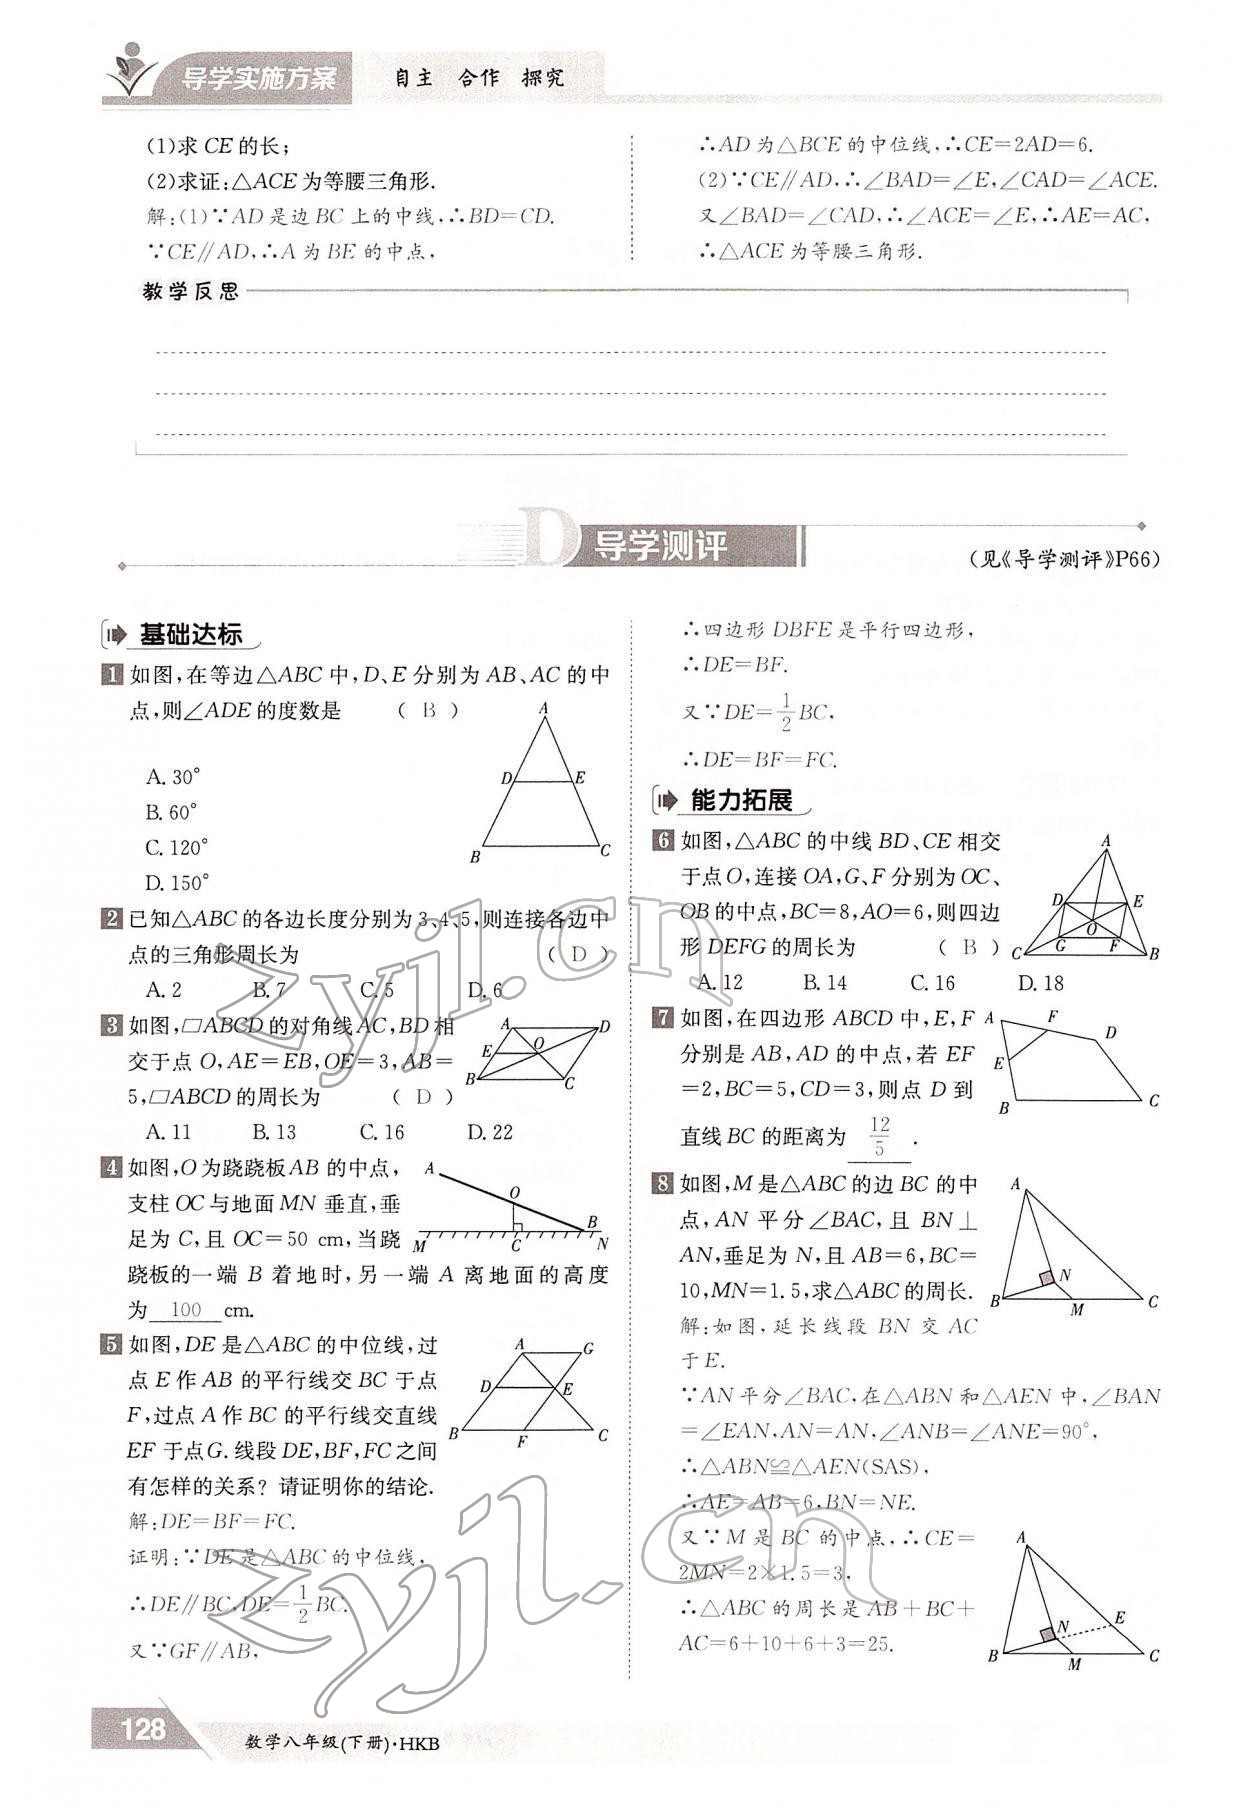 导学实施方案
自主 合作 探究
(1)求CE的长;
(2)求证:△ACE为等腰三角形.
解:(1)∵AD是边BC上的中线,∴BD=CD.
∵CE∥AD,∴A为BE的中点,
∴AD为△BCE的中位线,∴CE=2AD=6.
(2)∵CE∥AD,∴∠BAD=∠E,∠CAD=∠ACE.
又∠BAD=∠CAD,∴∠ACE=∠E,∴AE=AC,
∴△ACE为等腰三角形.
教学反思
D 导学测评
(见《导学测评》P66)
基础达标
1 如图,在等边△ABC中,D、E分别为AB、AC的中
点,则∠ADE的度数是 ( B )
A. 30°
B. 60°
C. 120°
D. 150°
A
D E
B C
2 已知△ABC的各边长度分别为3、4、5,则连接各边中
点的三角形周长为 ( D )
A. 2 B. 7 C. 5 D. 6
3 如图,▱ABCD的对角线AC,BD相
交于点O,AE=EB,OE=3,AB=
5,▱ABCD的周长为 ( D )
A. 11 B. 13 C. 16 D. 22
A D
E O
B C
4 如图,O为跷跷板AB的中点,
支柱OC与地面MN垂直,垂
足为C,且OC=50 cm,当跷
跷板的一端B着地时,另一端A离地面的高度
为 100 cm.
A
O
B
M C N
5 如图,DE是△ABC的中位线,过
点E作AB的平行线交BC于点
F,过点A作BC的平行线交直线
EF于点G.线段DE,BF,FC之间
有怎样的关系?请证明你的结论.
A G
D E
B F C
解:DE=BF=FC.
证明:∵DE是△ABC的中位线,
∴DE∥BC,DE=1/2BC.
又∵GF∥AB,
∴四边形DBFE是平行四边形,
∴DE=BF.
又∵DE=1/2BC,
∴DE=BF=FC.
能力拓展
6 如图,△ABC的中线BD、CE相交
于点O,连接OA,G、F分别为OC、
OB的中点,BC=8,AO=6,则四边
形DEFG的周长为 ( B )
A. 12 B. 14 C. 16 D. 18
A
D E
O
G F
C B
7 如图,在四边形ABCD中,E,F
分别是AB,AD的中点,若EF
=2,BC=5,CD=3,则点D到
直线BC的距离为 12/5 .
A F
D
E
B C
8 如图,M是△ABC的边BC的中
点,AN平分∠BAC,且BN⊥
AN,垂足为N,且AB=6,BC=
10,MN=1.5,求△ABC的周长.
A
N
B M C
解:如图,延长线段BN交AC
于E.
∵AN平分∠BAC,在△ABN和△AEN中,∠BAN
=∠EAN,AN=AN,∠ANB=∠ANE=90°,
∴△ABN≌△AEN(SAS),
∴AE=AB=6,BN=NE.
又∵M是BC的中点,∴CE=
2MN=2×1.5=3,
∴△ABC的周长是AB+BC+
AC=6+10+6+3=25.
A
N E
B M C
zyjl.cn
zyjl.cn
128
数学八年级(下册)·HKB